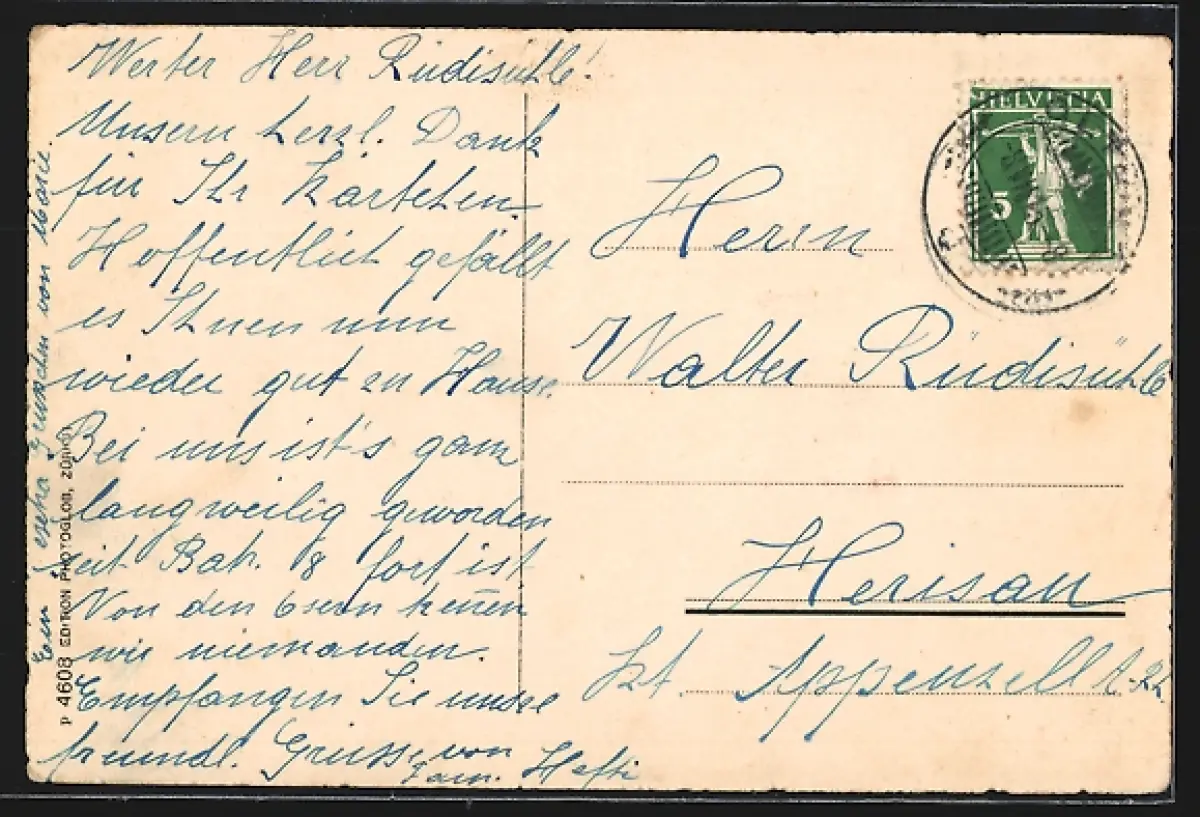 Werter Herr Rüdisühle!
Unsern herzl. Dank
für Ihr Kärtchen.
Hoffentlich gefällt
es Ihnen nun
wieder gut zu Hause.
Bei uns ist's ganz
langweilig geworden
seit Bat. 8 fort ist
Von den 6sern kennen
wir niemanden.
Empfangen Sie unsre
freundl. Grüsse von
Fam. Hefti
Ein extra Grüsschen von Marie.
P 4608 EDITION PHOTOGLOB, ZÜRICH
HELVETIA
5
Herrn
Walter Rüdisühle
Herisau
Kt. Appenzell A.-Rh.